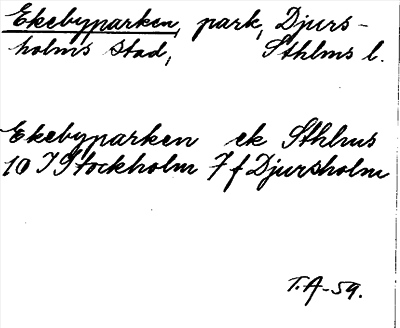 Ekebyparken, park, Djurs-
holms stad, Sthlms l.
Ekebyparken ek Sthlms
10 I Stockholm 7 f Djursholm
T.A-59.